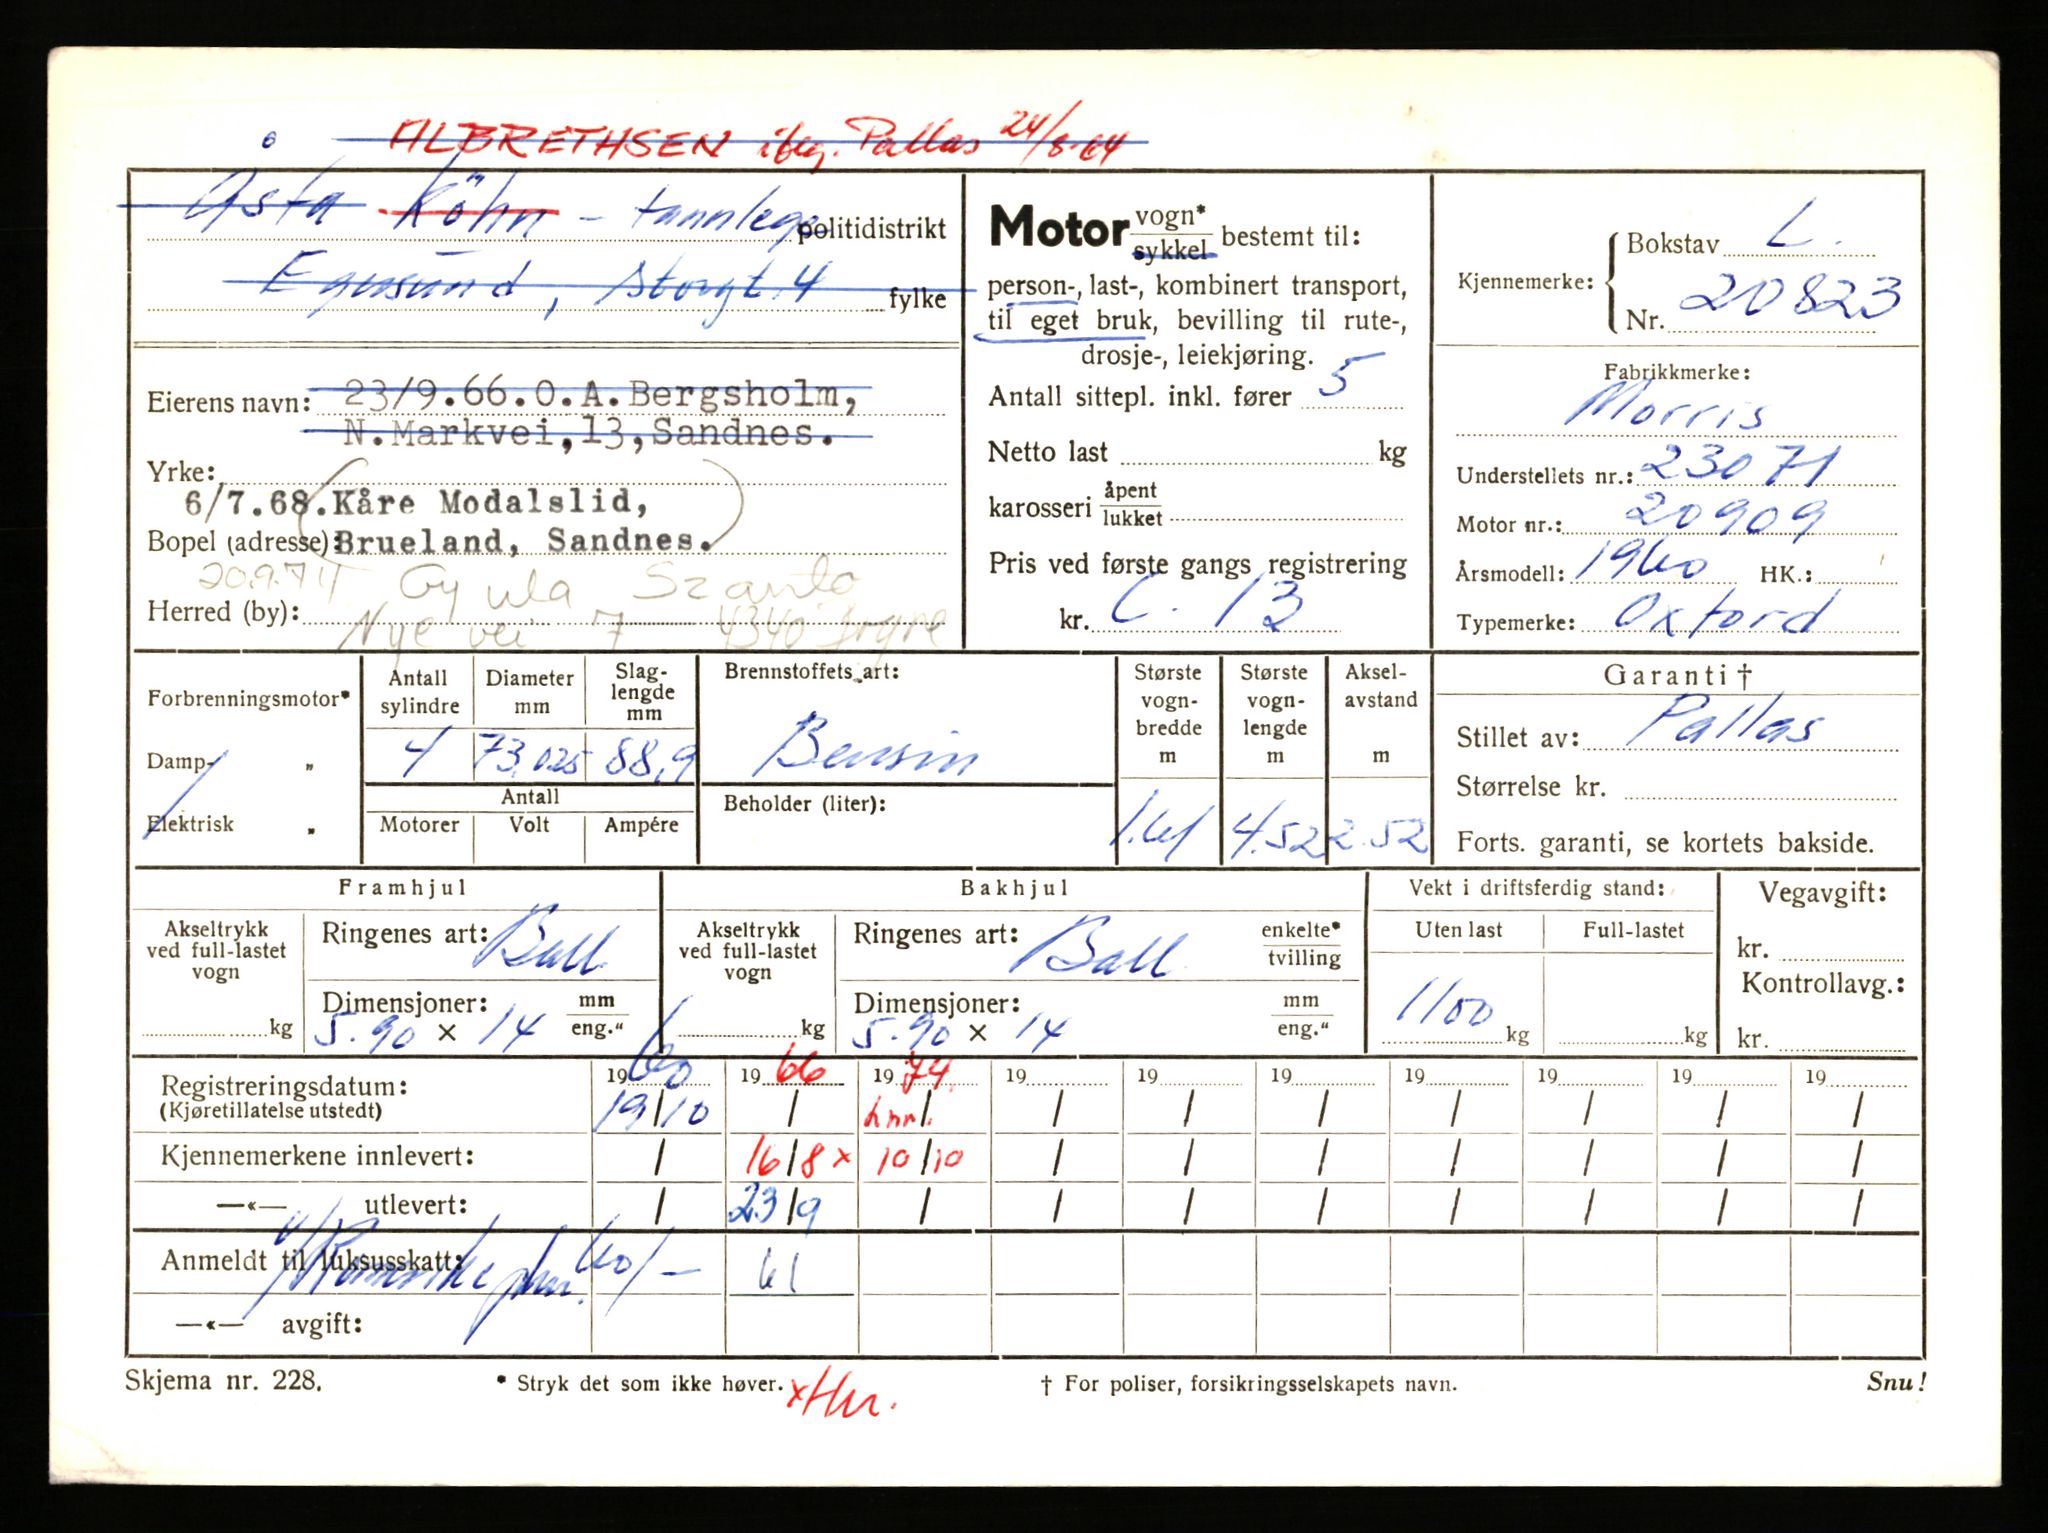 ALBRETHSEN iflg. Pallas 24/8-64
Asta Köhn - tannlege
politidistrikt
Egersund, Storgt. 4
fylke
Eierens navn: 23/9.66. O.A.Bergsholm,
N.Markvei,13,Sandnes.
Yrke:
6/7.68. Kåre Modalslid,
Bopel (adresse): Brueland, Sandnes.
20.9.74 Gyula Szanto
Herred (by):
Nye vei 7 4340 Bryne
Motor vogn* sykkel bestemt til:
person-, last-, kombinert transport,
til eget bruk, bevilling til rute-,
drosje-, leiekjøring.
Antall sittepl. inkl. fører 5
Netto last kg
karosseri åpent lukket
Pris ved første gangs registrering
kr. C. 13
Kjennemerke: Bokstav L.
Nr. 20823
Fabrikkmerke:
Morris
Understellets nr.: 23071
Motor nr.: 20909
Årsmodell: 1960 HK.:
Typemerke: Oxford
Forbrenningsmotor*
Damp- „
Elektrisk „
Antall sylindre
4
Diameter mm
73,025
Slag-lengde mm
88,9
Antall
Motorer Volt Ampére
Brennstoffets art:
Bensin
Beholder (liter):
Største vogn-bredde m
1.61
Største vogn-lengde m
4.52
Aksel-avstand m
2.52
Garanti †
Stillet av: Pallas
Størrelse kr.
Forts. garanti, se kortets bakside.
Framhjul
Akseltrykk ved full-lastet vogn
kg
Ringenes art: Ball
Dimensjoner: mm eng."
5.90 × 14
Bakhjul
Akseltrykk ved full-lastet vogn
kg
Ringenes art: Ball enkelte* tvilling
Dimensjoner: mm eng."
5.90 × 14
Vekt i driftsferdig stand:
Uten last Full-lastet
1100 kg kg
Vegavgift:
kr.
Kontrollavg.:
kr.
Registreringsdatum: 1960 1966 1974 19 19 19 19 19 19 19
(Kjøretillatelse utstedt) 19/10 / / / / / / / / /
Kjennemerkene innlevert: / 16/8 x 10/10 / / / / / / /
—«— utlevert: / 23/9 / / / / / / / /
Anmeldt til luksusskatt: 60/- 61
—«— avgift:
Skjema nr. 228.
* Stryk det som ikke høver.
† For poliser, forsikringsselskapets navn.
Snu!